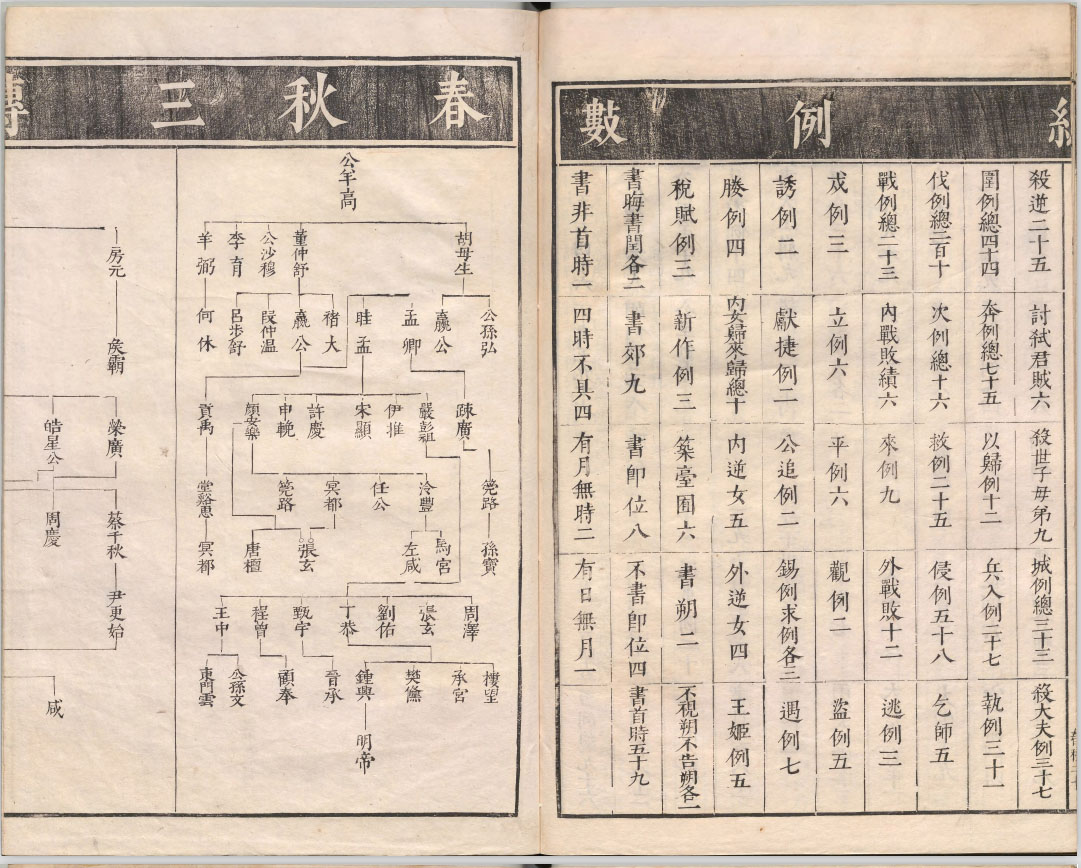 例數
殺逆二十五
討弒君賊六
殺世子母弟九
城例總三十三
殺大夫例三十七
圍例總四十四
奔例總七十五
以歸例十二
兵入例二十七
執例三十一
伐例總二百十
次例總十六
救例二十五
侵例五十八
乞師五
戰例總二十三
內戰敗績六
來例九
外戰敗十二
逃例三
戍例三
立例六
平例六
觀例二
盜例五
誘例二
獻捷例二
公追例二
錫例求例各三
遇例七
媵例四
內女歸來歸總十
內逆女五
外逆女四
王姬例五
稅賦例三
新作例三
築臺囿六
書朔二
不視朔不告朔各一
書晦書閏各二
書郊九
書卽位八
不書卽位四
書首時五十九
書非首時一
四時不具四
有月無時二
有日無月一
春秋三傳
公羊高
胡母生
董仲舒
公沙穆
李育
羊弼
公孫弘
嬴公
孟卿
眭孟
褚大
嬴公
段仲温
呂步舒
何休
疎廣
嚴彭祖
伊推
宋顯
許慶
申輓
顏安樂
貢禹
筦路
泠豐
任公
冥都
筦路
堂谿惠
孫寶
馬宮
左咸
張玄
唐檀
冥都
周澤
張玄
劉佑
丁恭
甄宇
程曾
王中
樓望
承宮
樊鯈
鍾興
晉承
顧奉
公孫文
東門雲
明帝
房元
侯霸
榮廣
皓星公
蔡千秋
周慶
尹更始
咸